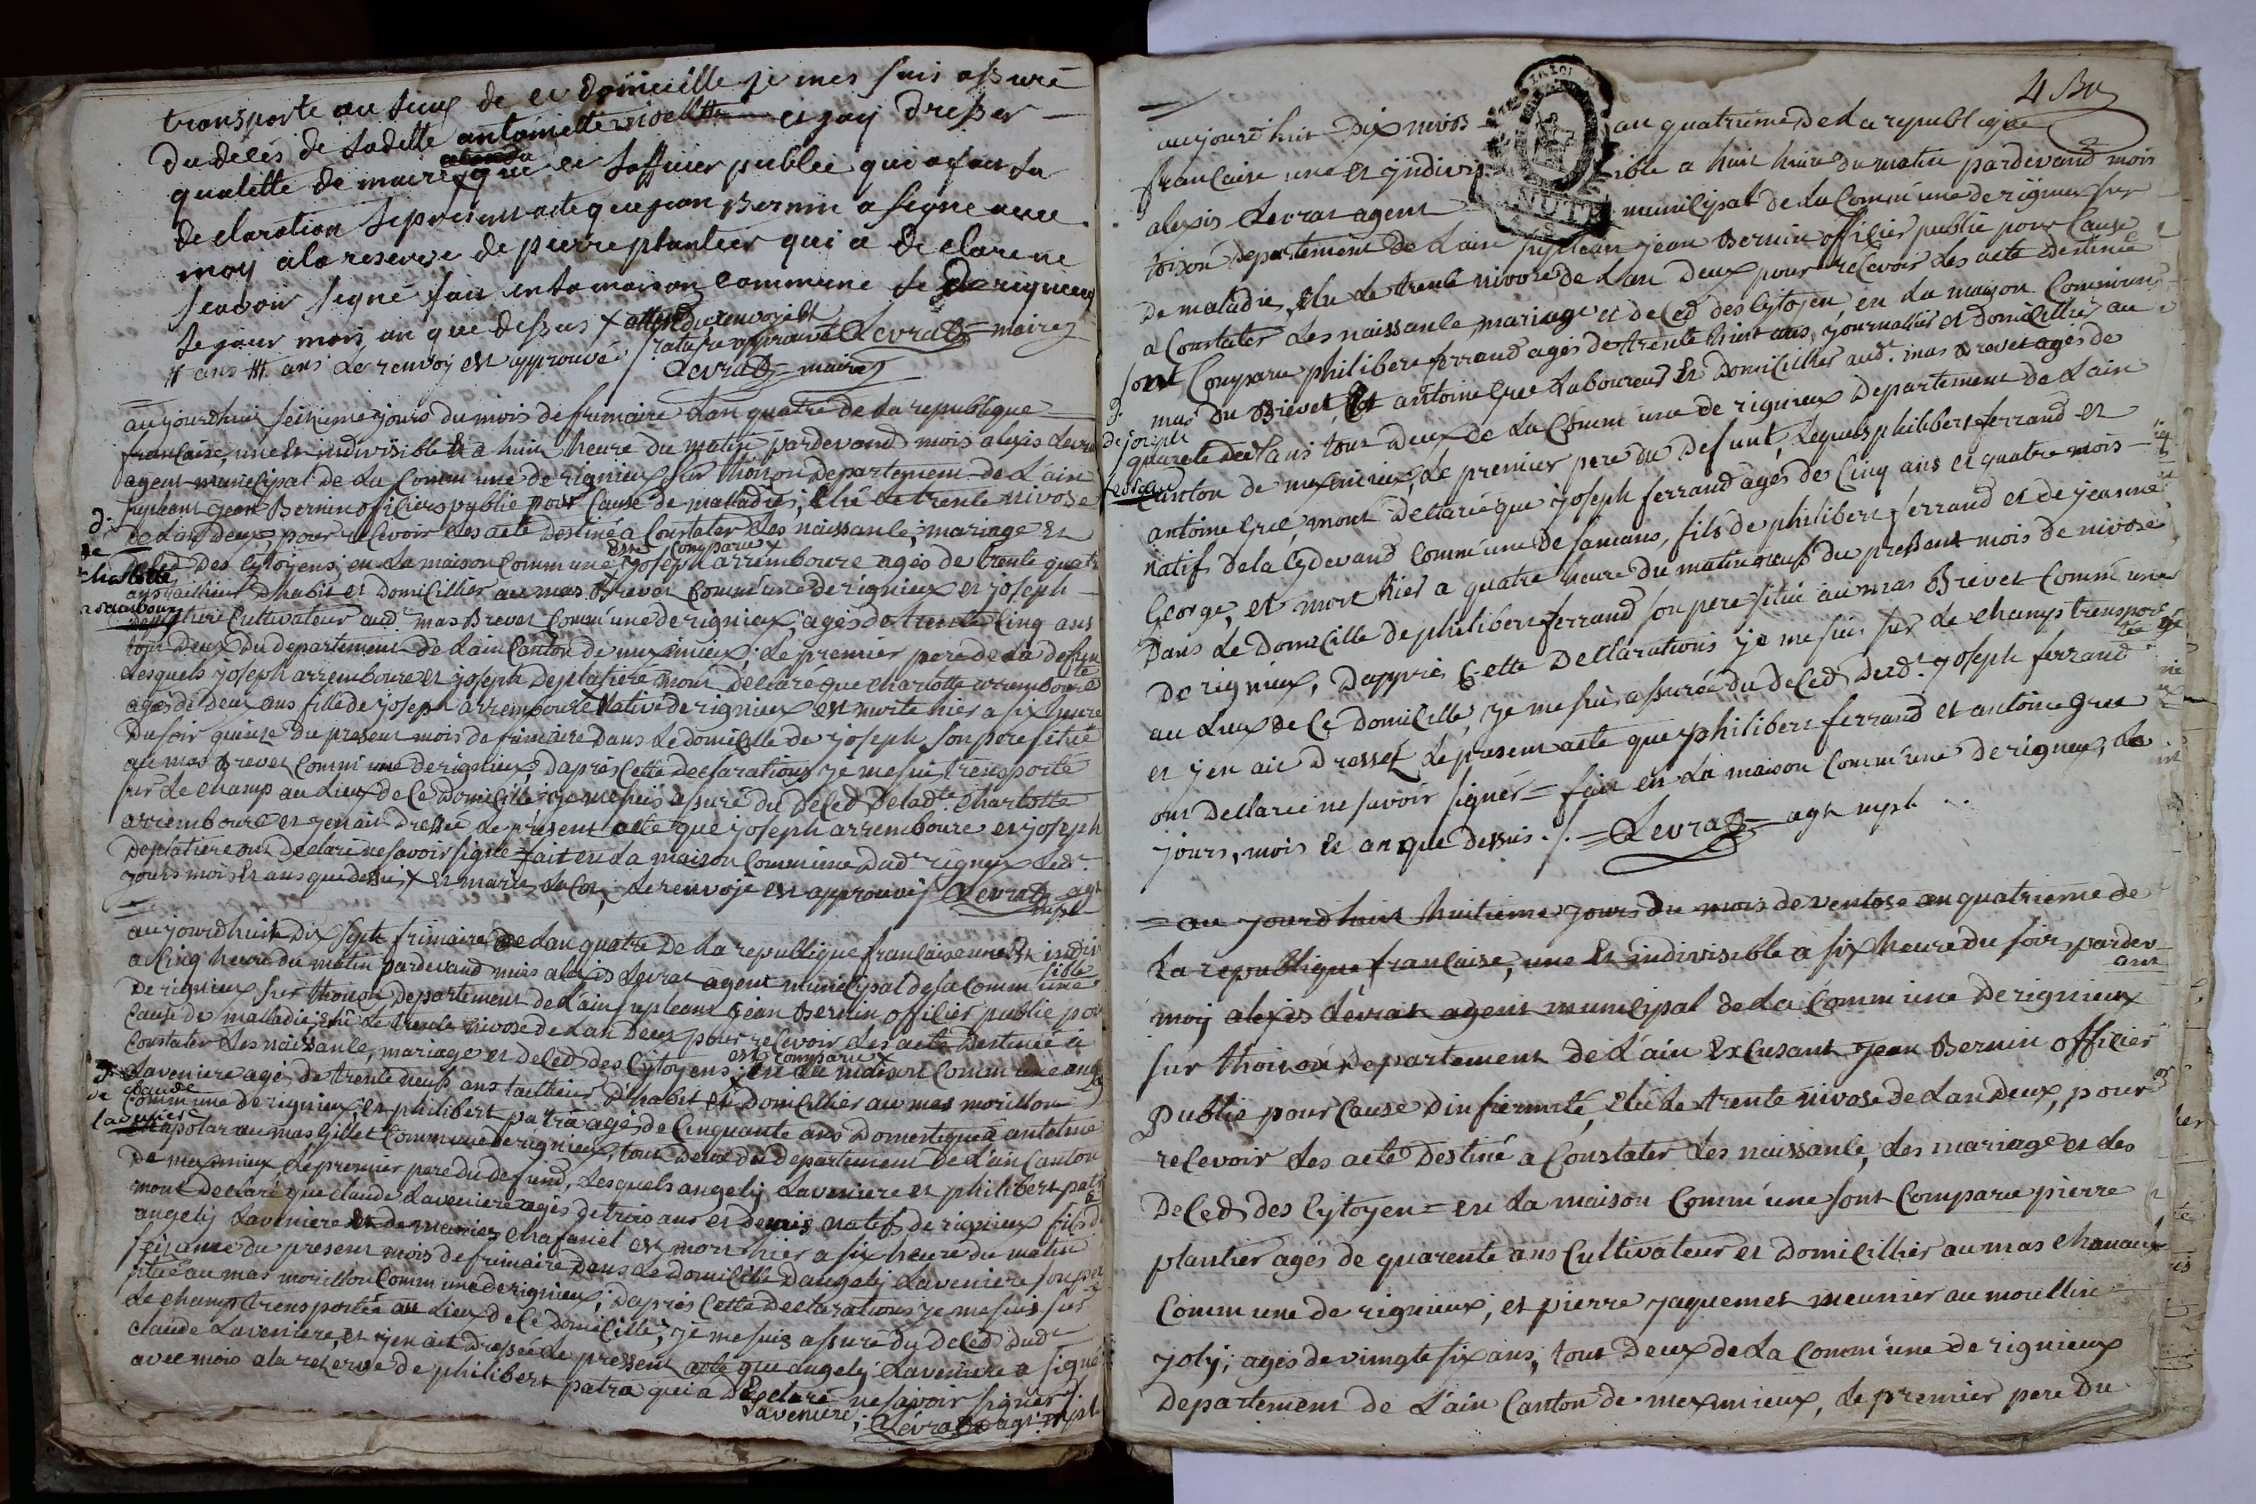 transporte au lieux de ce domicille je mes suis assuré
du deces de ladette antoinette et jay dresser
qualette de maire et lofficier publee qui a fait la
declaration le present acte que jean Bernin a signe avec
moy ala reserve de pierre plantier qui a declare ne
scavoir signé fait en la maison commune de Rigneux
le jour mois an que dessus Levrat maire
ans ans le renvoy est approuvé rature approuvé
Levrat maire
aujourdhuit seizieme jours du mois de frimaire lan quatre de la republique
francaise, une et indivisible a huit heure du matin pardevand mois alexis Levra
agent municipal de la Commune de rignieux sur thoizon departement de Lain
supleant jean Bernin officiers publie pour Cause de malladies, elu le trente nivose
de lan deux, pour recevoir les acte destiné a Constater les naissance, mariage et
d.
de
Charlotte
arrembour
deced des Cytoyens, en La maison Commune joseph arremboure agés de trente quatr
est comparu
ans tailleur dhabit et domicillier au mas Brevet Commune de rignieux et joseph
deplatiere Cultivateur aud. mas Brevet Commune de rignieux, agés de trente Cinq ans
tout deux du departement de Lain Canton de meximieux, Le premier pere de la defun
te
Lesquels joseph arremboure et joseph deplatiere mont declaré que Charlotte arremboure
agés de deux ans fille de joseph arremboure Native de rignieux est morte hier a six heure
du soir quinze du present mois de frimaire dans le domicille de joseph son pere situé
au mas Brevet Commune de rignieux, dapres Cette declarations je me suis transporté
sur le champ au Lieux de Ce domicille je me suis assuré du deced de lad.te Charlotte
arremboure et jen ait dressé le present acte que joseph arremboure et joseph
deplatiere ont declaré ne savoir signé = fait en La maison Commune dud. rigneux Led.
jours mois et ans que dessus le renvoje est approuvé Levrat agt
mpl
aujourdhuit dix septe frimaire de lan quatre de la republique francaise une et indivi
sible
a Cinq heure du matin pardevand mois alexis Levrat agent municipal de la Commune
de rignieux sur thoizon departement de Lain supleant jean Bernin officier public pour
Cause de malladie, elu le trente nivose de Lan deux pour recevoir les acte destinée a
Constater les naissance, mariage et deced des Cytoyens, en La maison Commune ang
est comparu
d.
de
Claude
Laveniere
Laveniere agé de trente neuf ans tailleur dhabit et domicillier au mas morillon
Commune de rignieux et philibert patra agé de Cinquante ans domestique a antoine
Chapolar au mas Gillet Commune de rignieux, tout deux du departement de Lain Canton
de meximieux Le premier pere du defund, Lesquels angely Laveniere et philibert patra
mont declaré que Claude Laveniere agés de trois ans et demis natif de rignieux fils d
angely Laveniere et de mariee Chafanet est mort hier a six heure du matin
seizieme du present mois de frimaire dans le domicille dangely Laveniere son per
situé au mas morillon Commune de rignieux, dapres Cette declarations je me suis sur
Le champ transportée au Lieux de Ce domicille, je me suis assuré du deced dud.
claude Laveniere, et jen ait dressée Le present acte que angely Laveniere a signé
avec mois ala reserve de philibert patra qui a declaré ne savoir signer
Laveniere, Levrat agt mpl
4 Bu
aujourdhuit dix nivos an quatrieme de La republique
francaise une et jndivis ible a huit heure du matin pardevand mois
alexis Levrat agent municipal de La Commune de rignieux sur
toizon departement de Lain supleant jean Bernin officier public pour Cause
de maladie, elu Le trente nivose de Lan deux pour recevoir Les acte destinée
a Constater Les naissance, mariage et deced des Cytoyen, en La maison Commune
sont Comparu philibere ferrand agés de trente huit ans, journallier et domicillier au
mas du Brevet Et antoine Gue Laboureur Et domicillier aud. mas Brevet agés de
d.
de joseph
ferrand
quarete deux ans tout deux de La Commune de rignieux departement de Lain
Canton de meximieux, Le premier pere du defunt, Lequels philibert ferrand et
antoine Gue, mont declaré que joseph ferrand agés de Cinq ans et quatre mois
natif de la Cydevand Commune de samans, fils de philibert ferrand et de jeanne
George, et mort hier a quatre heure du matin neuf du pressent mois de nivose
Dans Le domicille de philibere ferrand son pere situé au mas Brevet Commune
de rignieux, dapprés Cette declarations je me suis sur Le champs transpor
té
au Lieux de Ce domicille, je me suis assurée du deced dud. joseph ferrand
et jen ait dressé Le present acte que philibere ferrand et antoine Gue
ont dellaré ne savoir signér = fait en La maison Commune de rigneux, Le
jours, mois et an que dessus ./. = Levrat agt mpl
= au jourdhuit huitieme jours du mois de ventose an quatrieme de
La republique francaise, une et indivisible à six heure du soir, pardev
ant
moy alexis Levrat agent municipal de La Commune de rignieux
sur thoizon departement de Lain Excusant jean Bernin officier
publie pour Cause dinfirmité, elu Le trente nivose de Lan deux, pour
recevoir Les acte destiné a Constater Les naissance, Les mariage et Les
deced des Cytoyen = en La maison Commune sont Comparu pierre
plantier agés de quarente ans Cultivateur et domicillier au mas Chanaux
Commune de rignieux, et pierre jaquemet meunier au moullin
joly, agés de vingte six ans, tout deux de La Commune de rignieux
departement de Lain Canton de meximieux, Le premier pere du